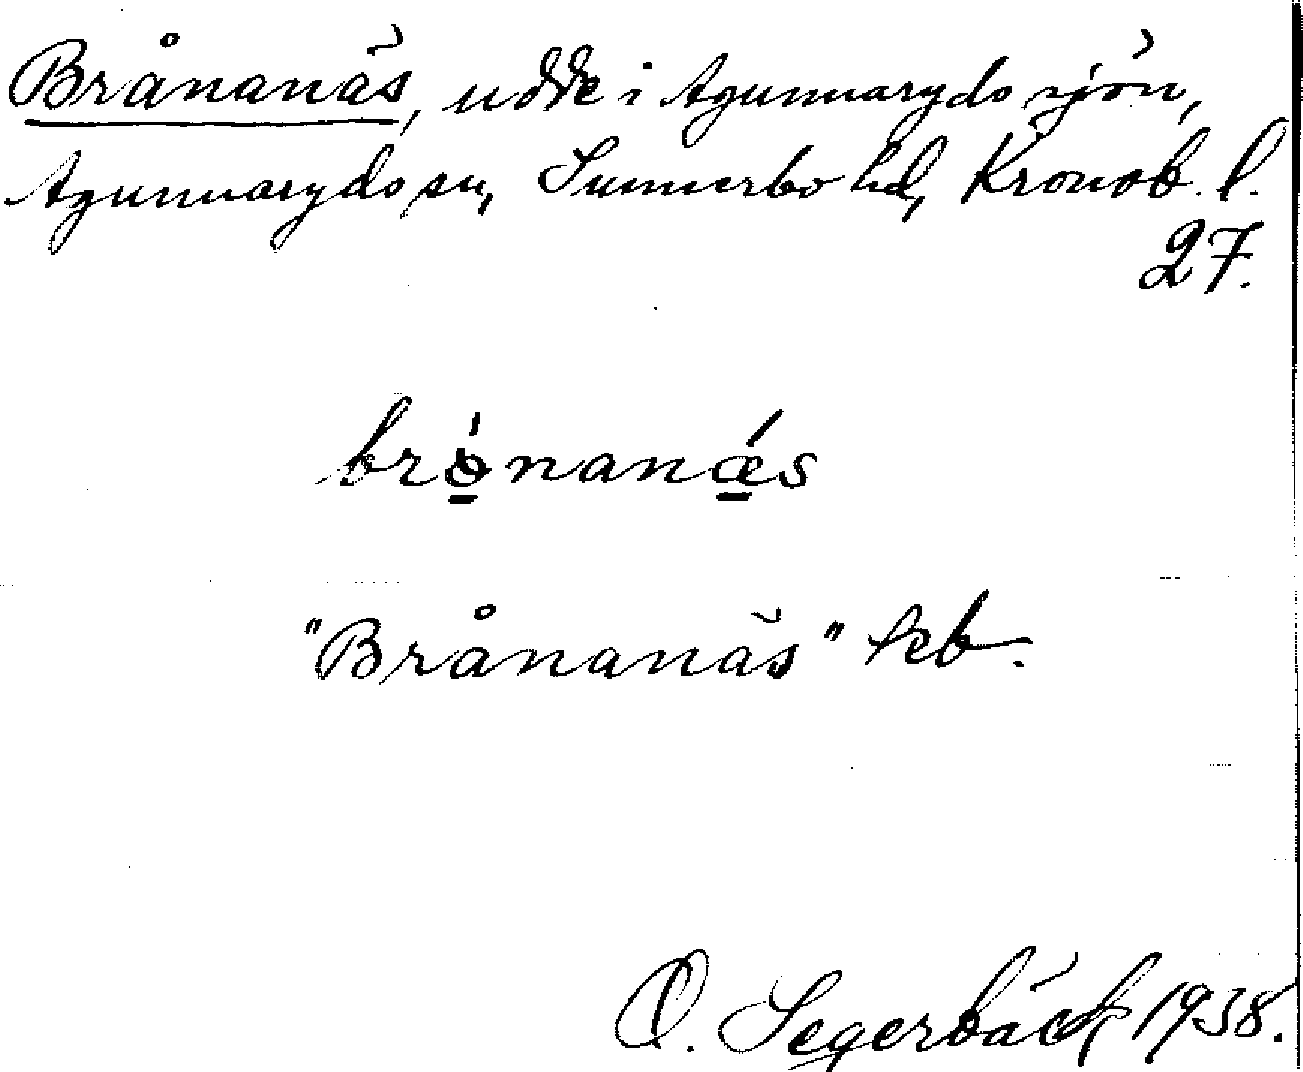 Brånanäs, udde i Agunnarydssjön,
Agunnaryds sn, Sunnerbo hd, Kronob. l.
27.
brånanǽ̱s
"Brånanäs" kb.
O. Segerbäck 1938.